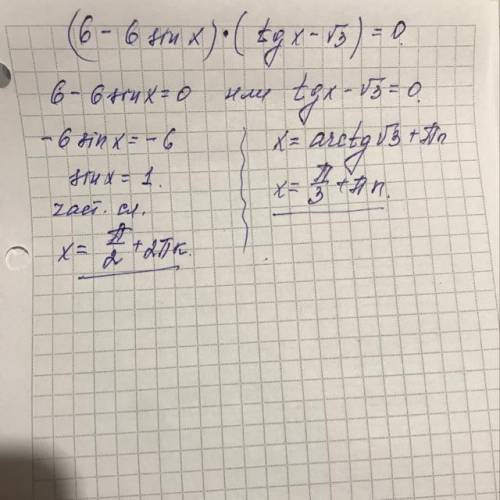 (6 - 6 sin x) · (tg x - √3) = 0.
6 - 6 sin x = 0 или tg x - √3 = 0.
- 6 sin x = - 6
sin x = 1.
част. сл.
x = π/2 + 2πk.
x = arctg √3 + πn
x = π/3 + πn.